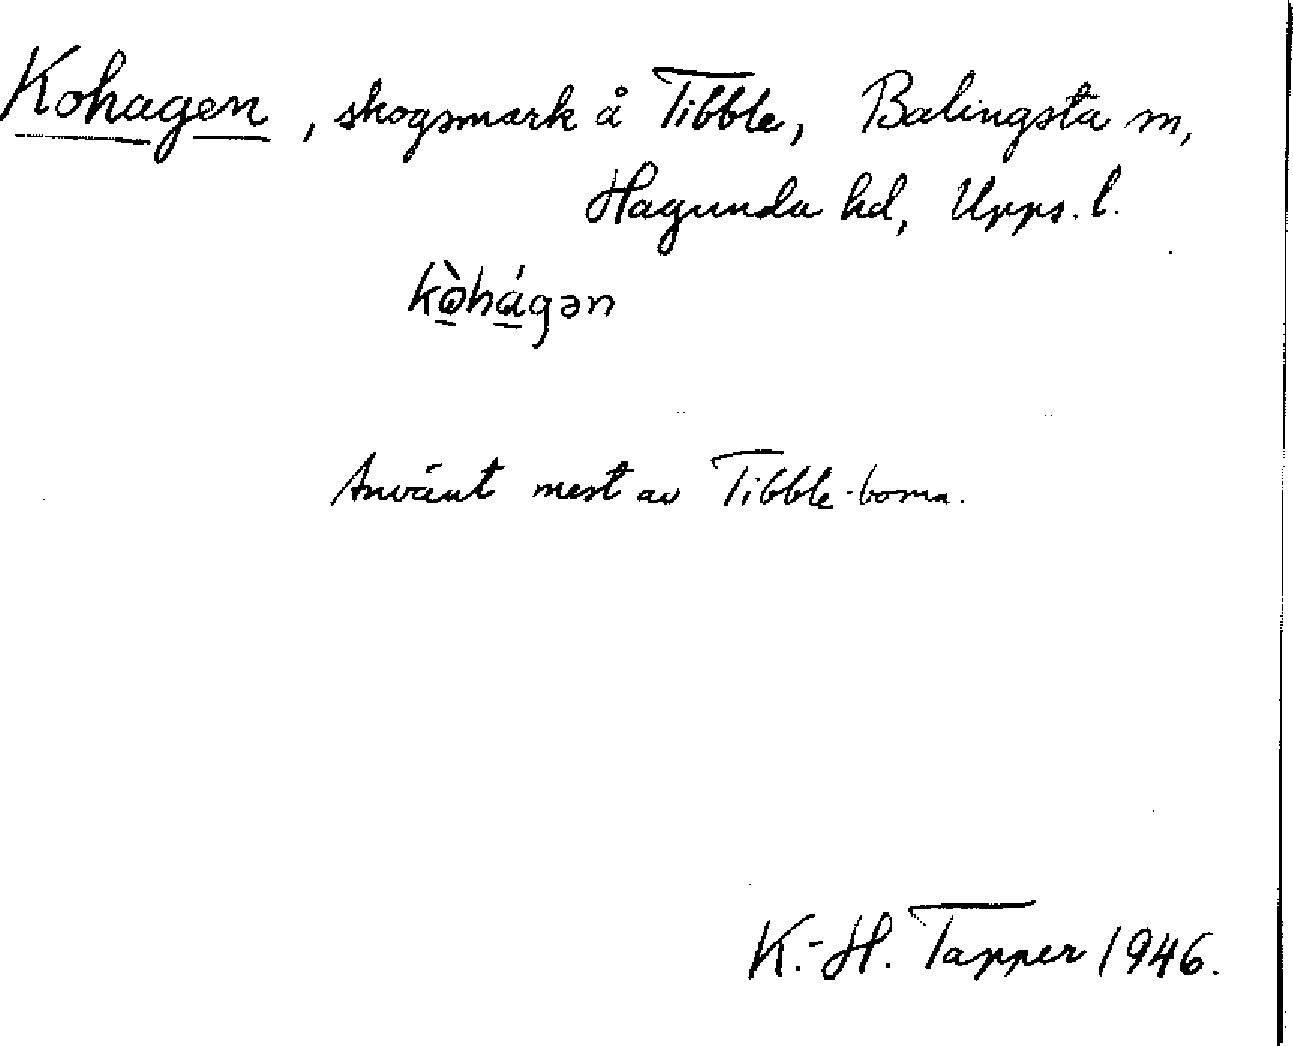 Kohagen, skogsmark å Tibble, Balingsta sn,
Hagunda hd, Upps. l.
kòhágən
Använt mest av Tibble-borna.
K.-H. Tapper 1946.